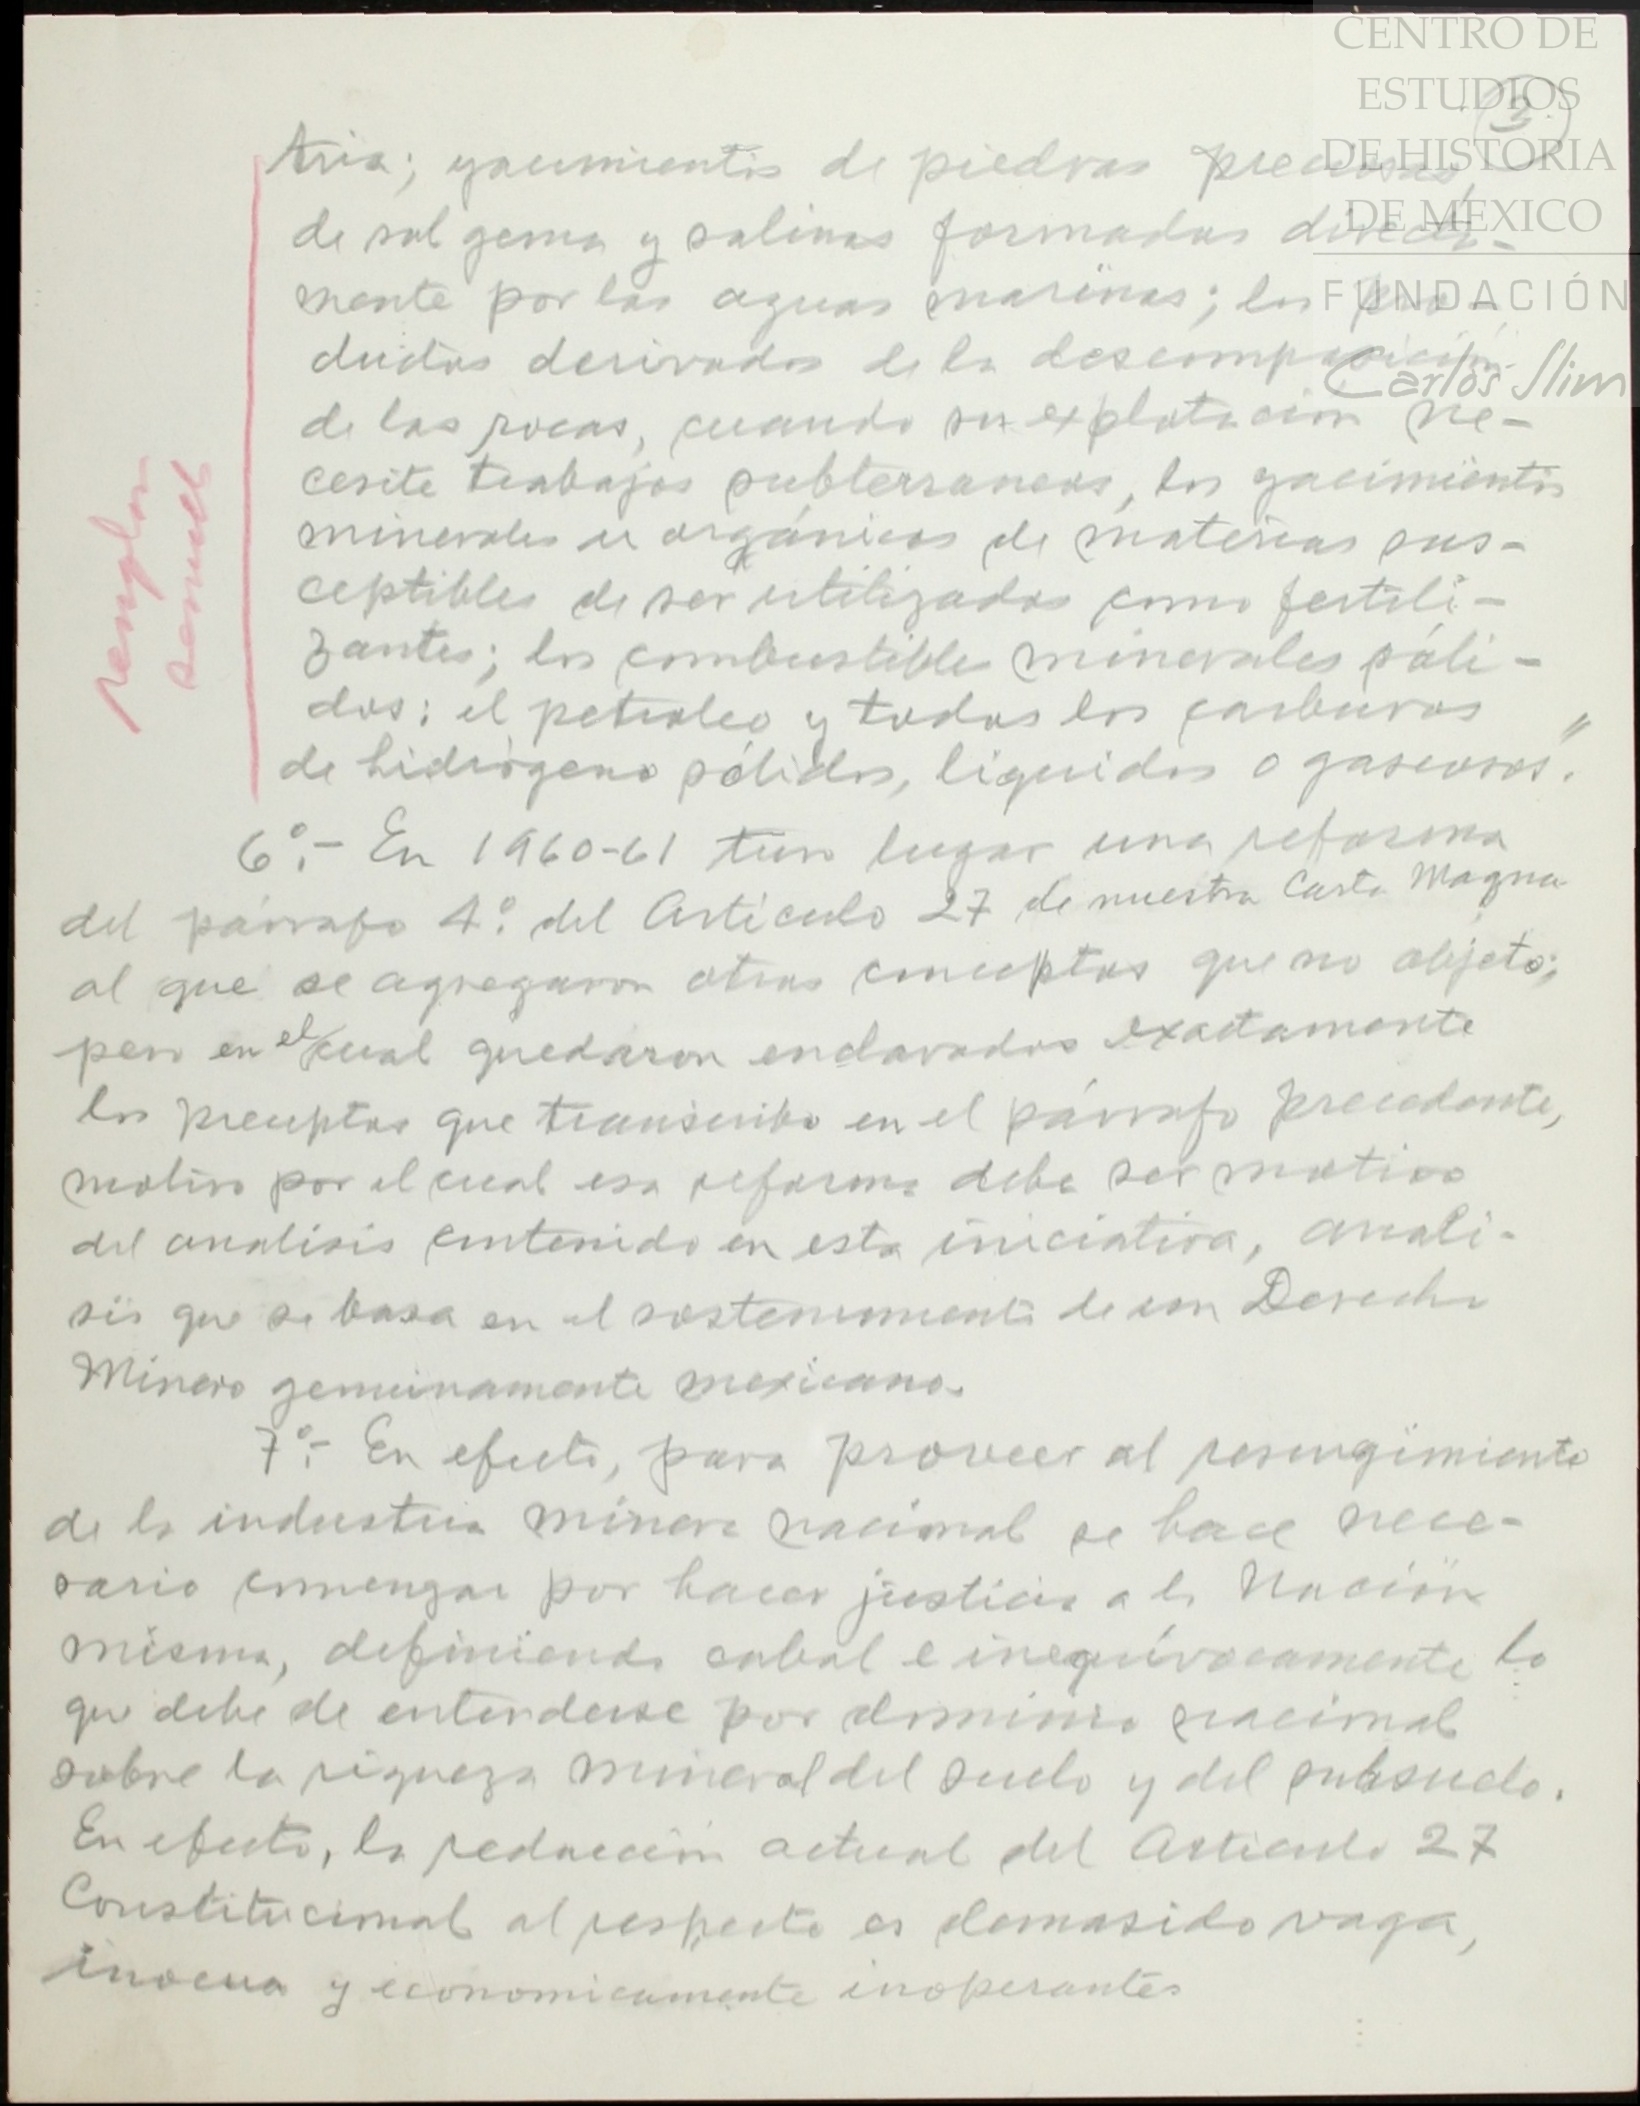 CENTRO DE
ESTUDIOS
DE HISTORIA
DE MEXICO
FUNDACIÓN
Carlos Slim
3
tria; yacimientos de piedras preciosas,
de sal gema y salinas formadas directa-
mente por las aguas marinas; los pro-
ductos derivados de la descomposición
de las rocas, cuando su explotación ne-
cesite trabajos subterraneos, los yacimientos
minerales u orgánicos de materias sus-
ceptibles de ser utilizados como fertili-
zantes; los combustibles minerales sóli-
dos; el petroleo y todos los carburos
de hidrógeno sólidos, liquidos o gaseosos".
renglon
sencillo
6°.- En 1960-61 tuvo lugar una reforma
del párrafo 4°. del Articulo 27 de nuestra Carta Magna
al que se agregaron otros conceptos que no objeto;
pero en el cual quedaron enclavados exactamente
los preceptos que transcribo en el párrafo precedente,
motivo por el cual esa reforma debe ser motivo
del analisis contenido en esta iniciativa, anali-
sis que se basa en el sostenimiento de un Derecho
Minero genuinamente mexicano.
7°.- En efecto, para proveer al resurgimiento
de la industria minera nacional se hace nece-
sario comenzar por hacer justicia a la Nación
misma, definiendo cabal e inequívocamente lo
que debe de entenderse por dominio nacional
sobre la riqueza mineral del suelo y del subsuelo.
En efecto, la redacción actual del Articulo 27
Constitucional al respecto es demasido vaga,
inocua y economicamente inoperantes